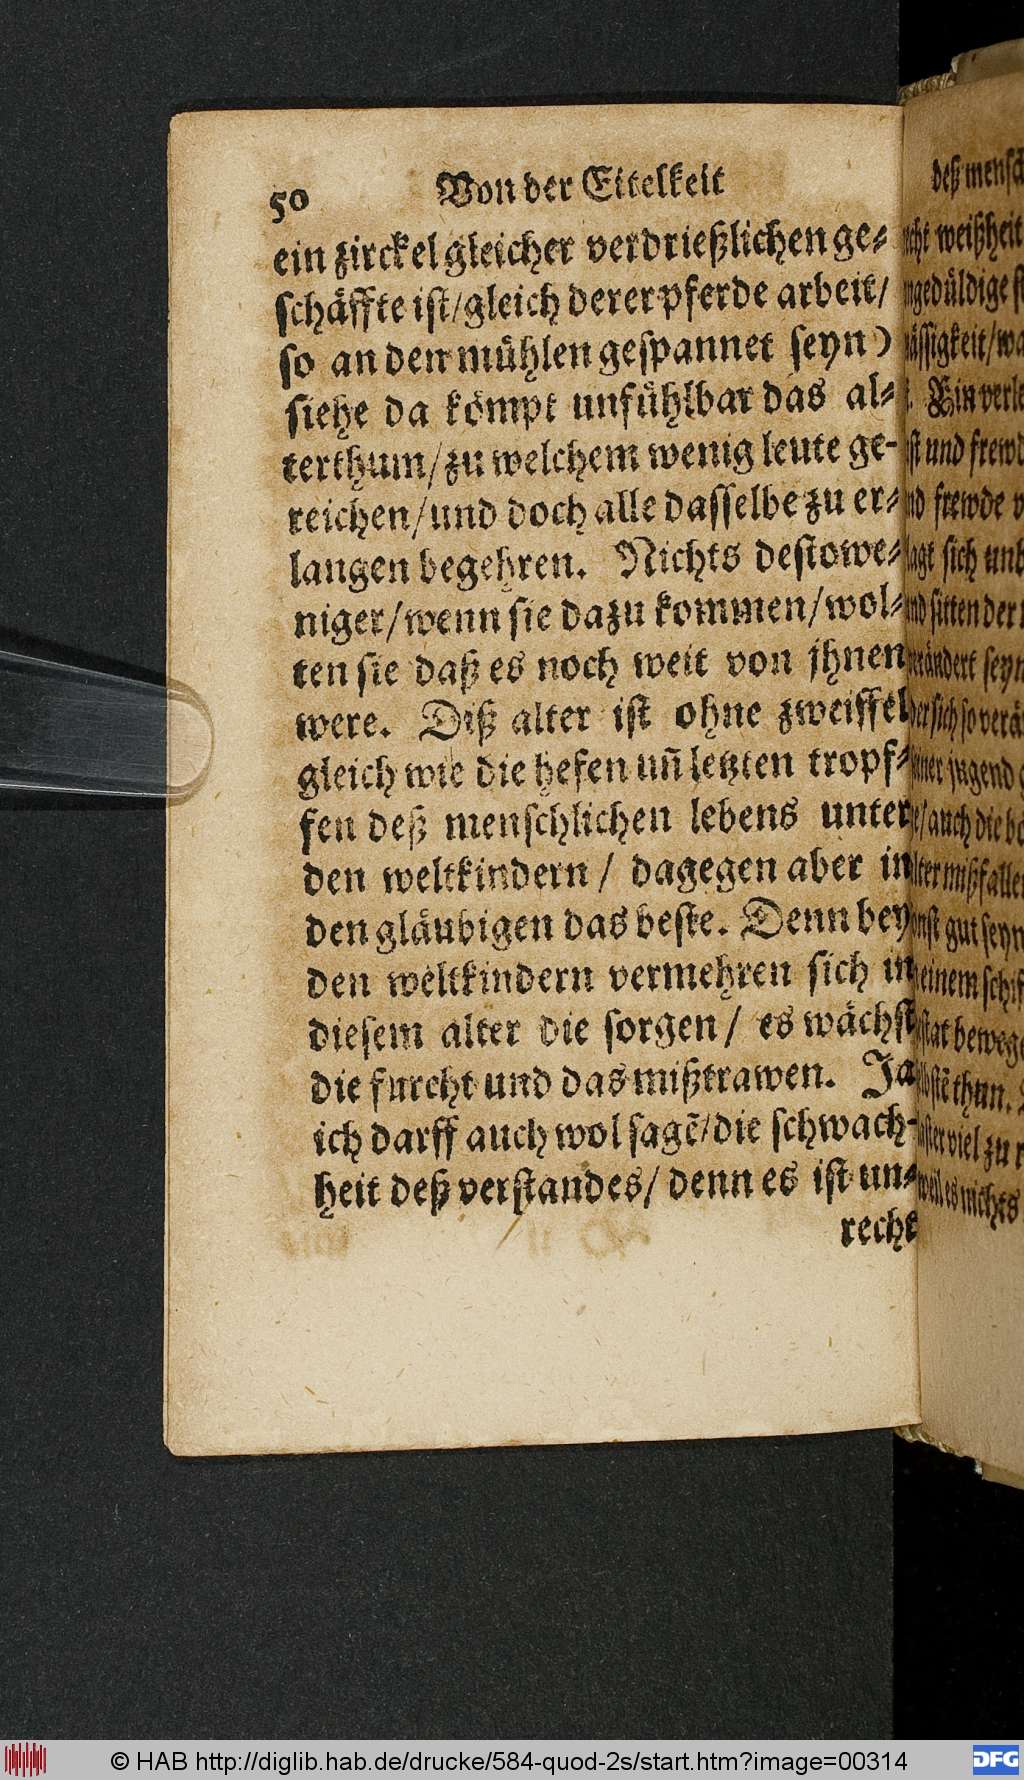 50 Von der Eitelkeit
ein zirckel gleicher verdrießlichen ge-
schäffte ist/gleich derer pferde arbeit/
so an den mühlen gespannet seyn)
siehe da kömpt unfühlbar das al-
terthum/zu welchem wenig leute ge-
reichen/und doch alle dasselbe zu er-
langen begehren. Nichts destowe-
niger/wenn sie dazu kommen/wol-
ten sie daß es noch weit von jhnen
were. Diß alter ist ohne zweiffel
gleich wie die hefen uñ letzten tropf-
fen deß menschlichen lebens unter
den weltkindern/ dagegen aber in
den gläubigen das beste. Denn bey
den weltkindern vermehren sich in
diesem alter die sorgen/ es wächst
die furcht und das mißtrawen. Ja
ich darff auch wol sagẽ/die schwach-
heit deß verstandes/ denn es ist un-
recht
deß mensch
weißheit
gedüldige
ässigkeit/wa
Ein verle
und frewd
frewde
sich unb
sitten der
rändert seyn
sich so verä
jugend
/auch die
mißfallen
gut seyn
einem schif
bewege
thun.
viel zu
weil es nichts
© HAB http://diglib.hab.de/drucke/584-quod-2s/start.htm?image=00314
DFG